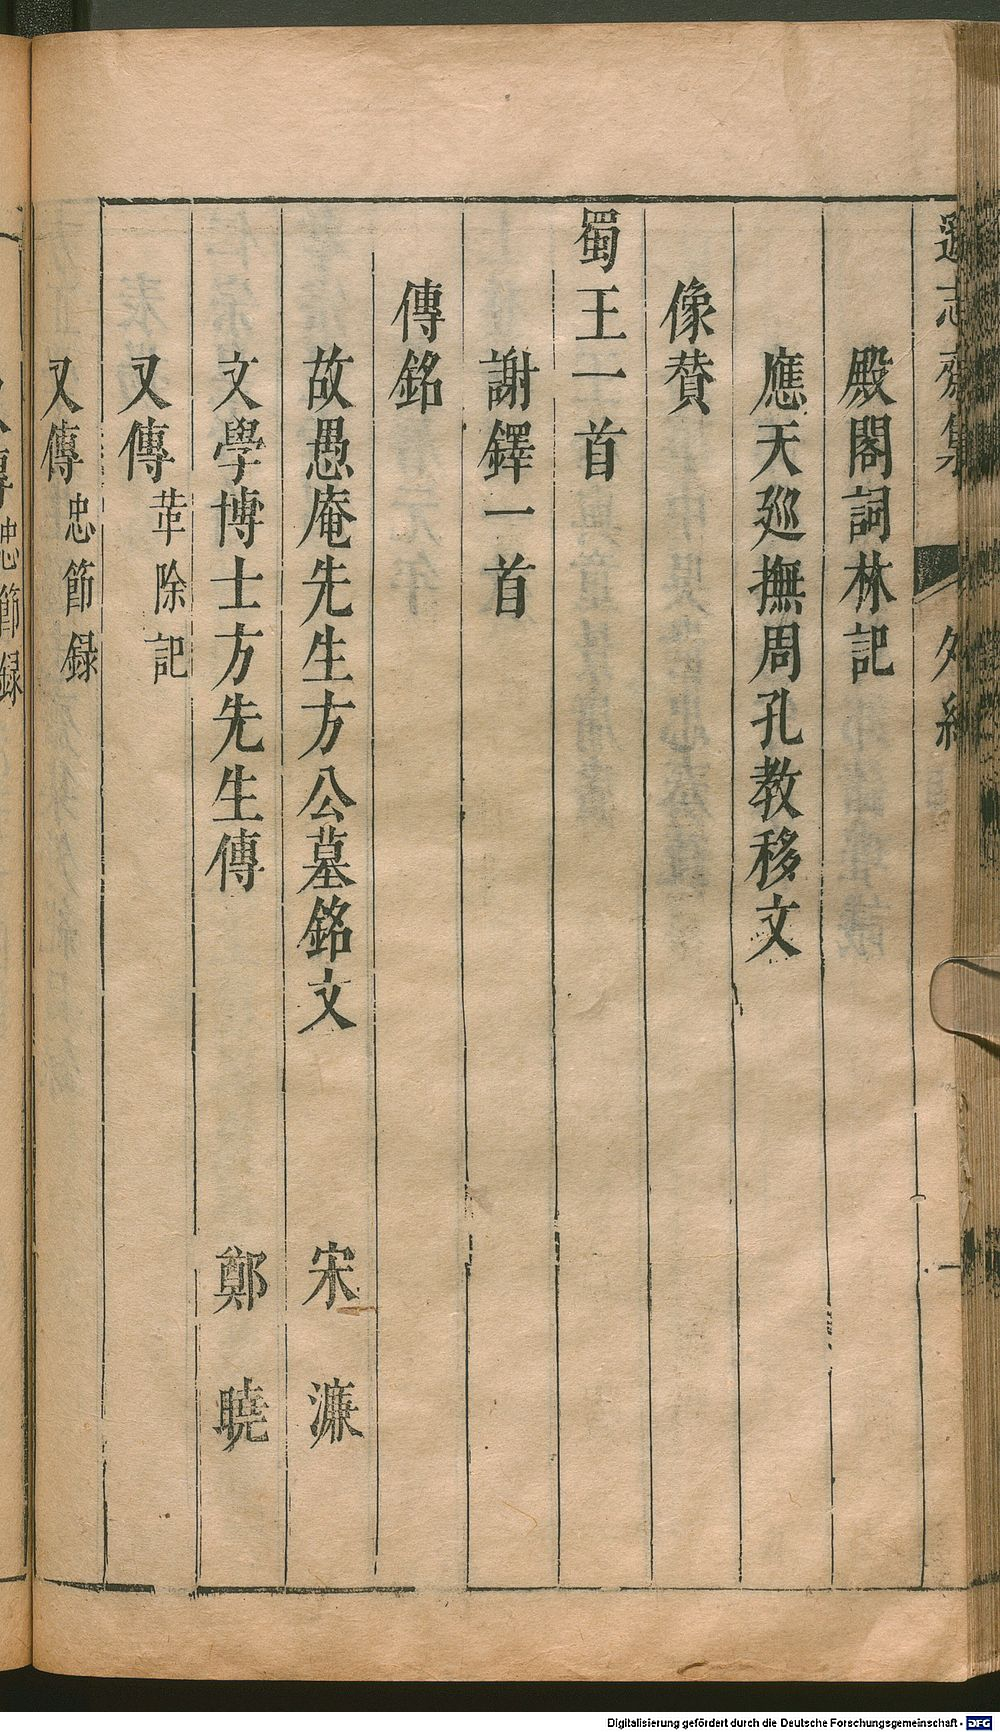 遜志齋集 外紀 一
殿閣詞林記
應天廵撫周孔教移文
像賛
蜀王一首
謝鐸一首
傳銘
故愚庵先生方公墓銘文 宋濂
文學博士方先生傳 鄭曉
又傳 革除記
又傳 忠節録
傳 忠節録
Digitalisierung gefördert durch die Deutsche Forschungsgemeinschaft - DFG